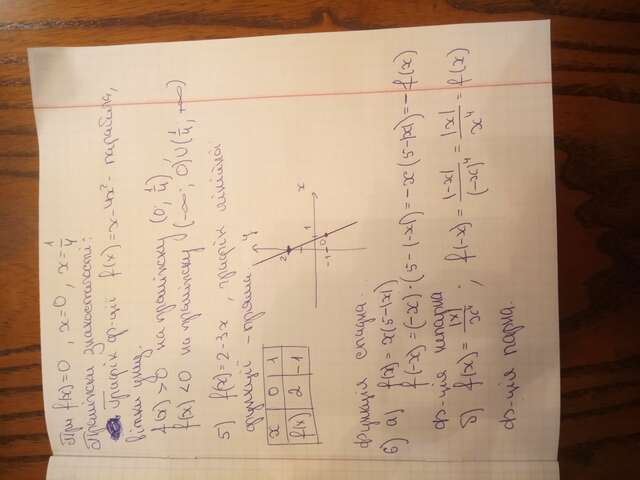 При f(x)=0, x=0, x=1/4
Проміжки знакосталості:
Графік ф-ції f(x)=x-4x²- парабола,
вітки вниз.
f(x) > 0 на проміжку (0; 1/4),
f(x) < 0 на проміжку (-∞; 0)∪(1/4; +∞)
5) f(x)=2-3x, графік лінійної
функції - пряма.
x 0 1
f(x) 2 -1
y
2
1
0
-1
x
Функція спадна.
6) а) f(x)=x(5-|x|)
f(-x)=(-x)·(5-|-x|)=-x(5-|x|)=-f(x)
Ф-ція непарна
б) f(x)=|x|/x⁴; f(-x)=|-x|/(-x)⁴=|x|/x⁴=f(x)
Ф-ція парна.